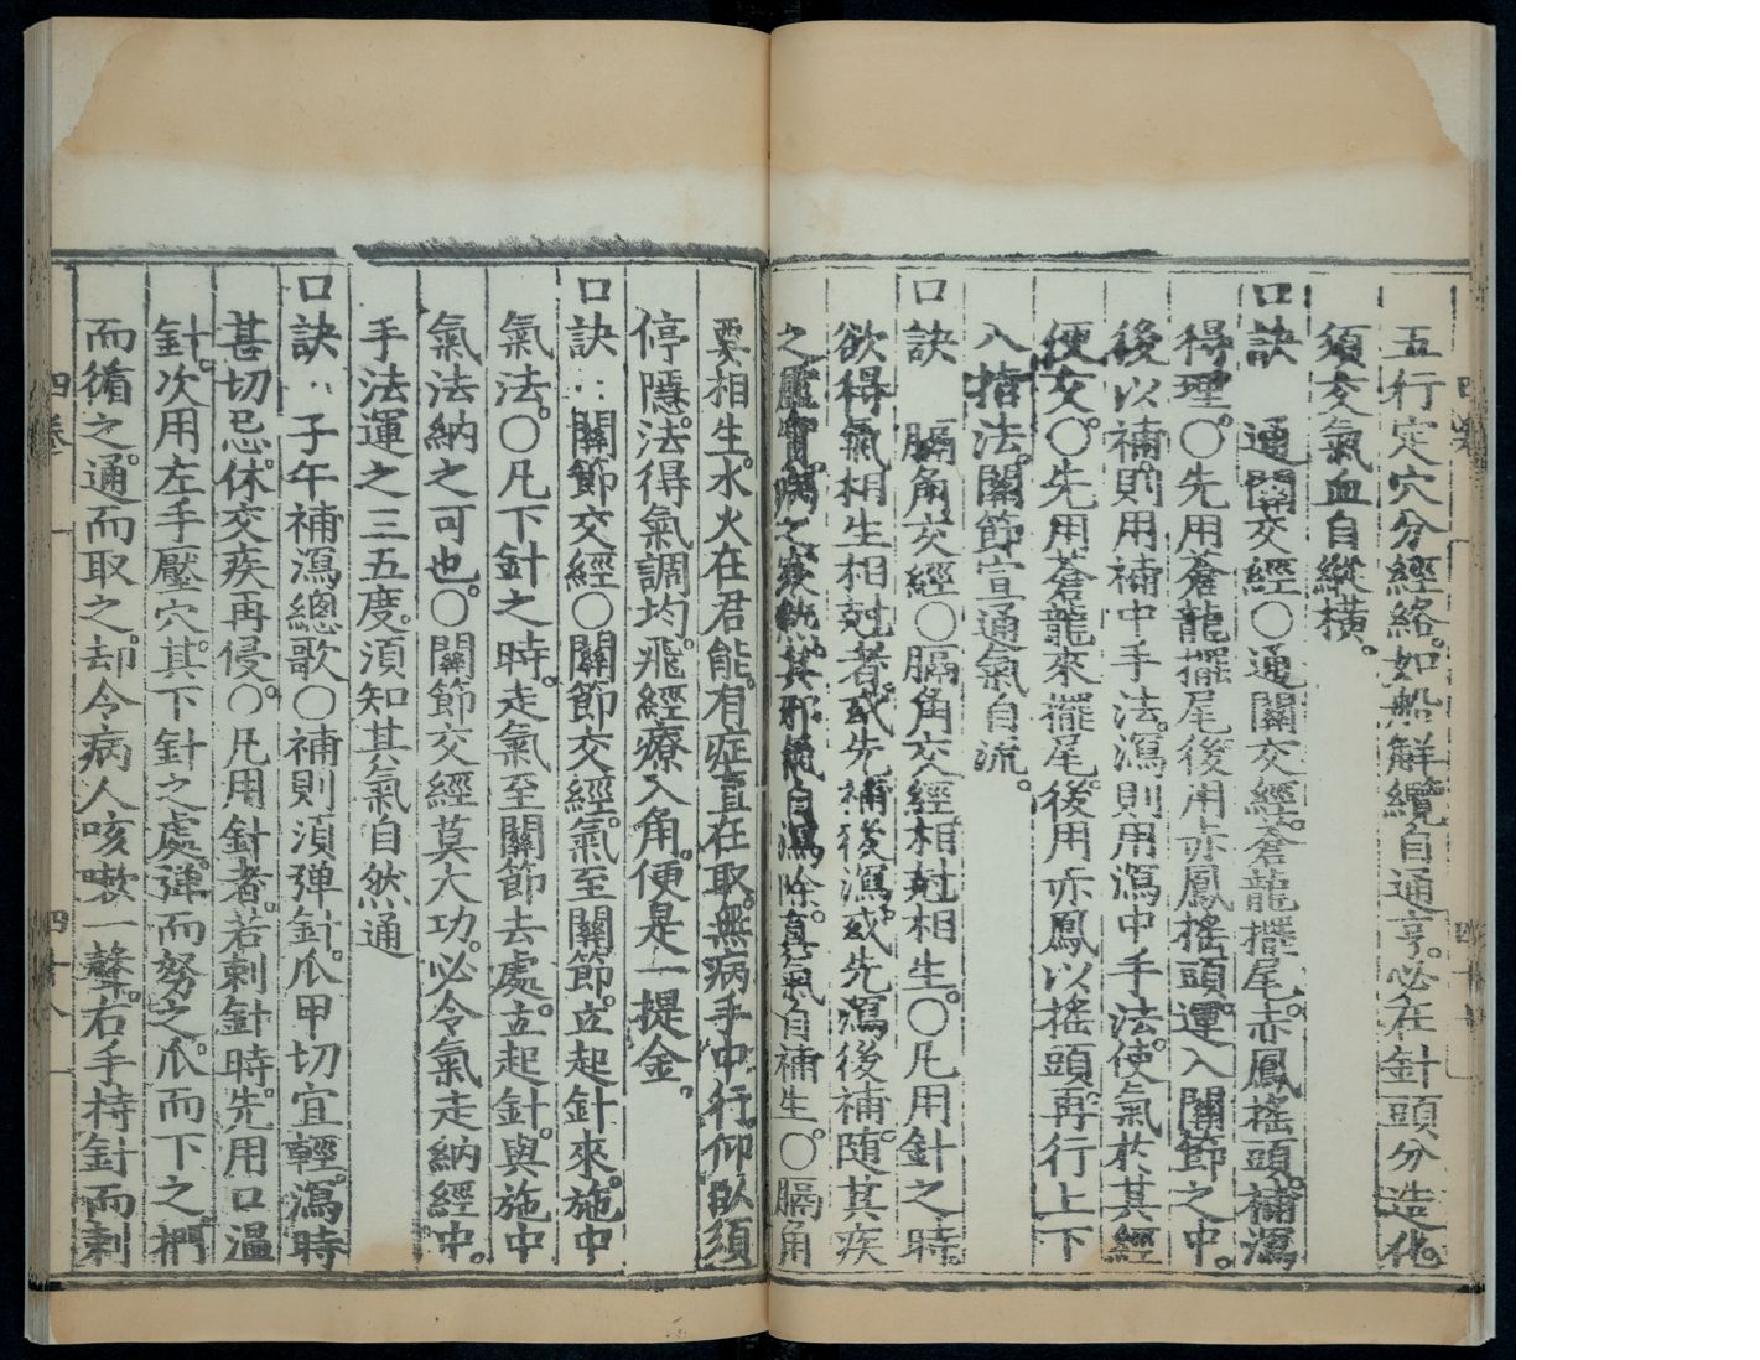 五行定穴分經絡。如船解纜自通亨。必在針頭分造化。
須交氣血自縱橫。
口訣 通關交經〇通關交經。蒼龍擺尾。赤鳳搖頭。補瀉
得理。〇先用蒼龍擺尾後用赤鳳搖頭。運入關節之中。
後以補則用補中手法。瀉則用瀉中手法。使氣於其經
便交。〇先用蒼龍來擺尾。後用赤鳳以搖頭。再行上下
八指法。關節宣通氣自流。
口訣 膈角交經〇膈角交經相尅相生。〇凡用針之時。
欲得氣相生相尅者。或先補後瀉。或先瀉後補。随其疾
之虛實。病之寒熱。其邪氣自瀉除。真氣自補生。〇膈角
要相生。水火在君能。有症直在取。無病手中行。仰臥須
停隱。法得氣調均。飛經療入角。便是一提金。
口訣‥關節交經〇關節交經。氣至關節。立起針來。施中
氣法。〇凡下針之時。走氣至關節去處。立起針。與施中
氣法納之可也。〇關節交經莫大功。必令氣走納經中。
手法運之三五度。須知其氣自然通
口訣‥子午補瀉總歌〇補則湏弹針。爪甲切宜輕。瀉時
甚切忌。休交疾再侵。〇凡用針者。若刺針時。先用口溫
針。次用左手壓穴。其下針之處。弹而努之。爪而下之。捫
而循之。通而取之。却令病人咳嗽一聲。右手持針而刺
四卷
四十八